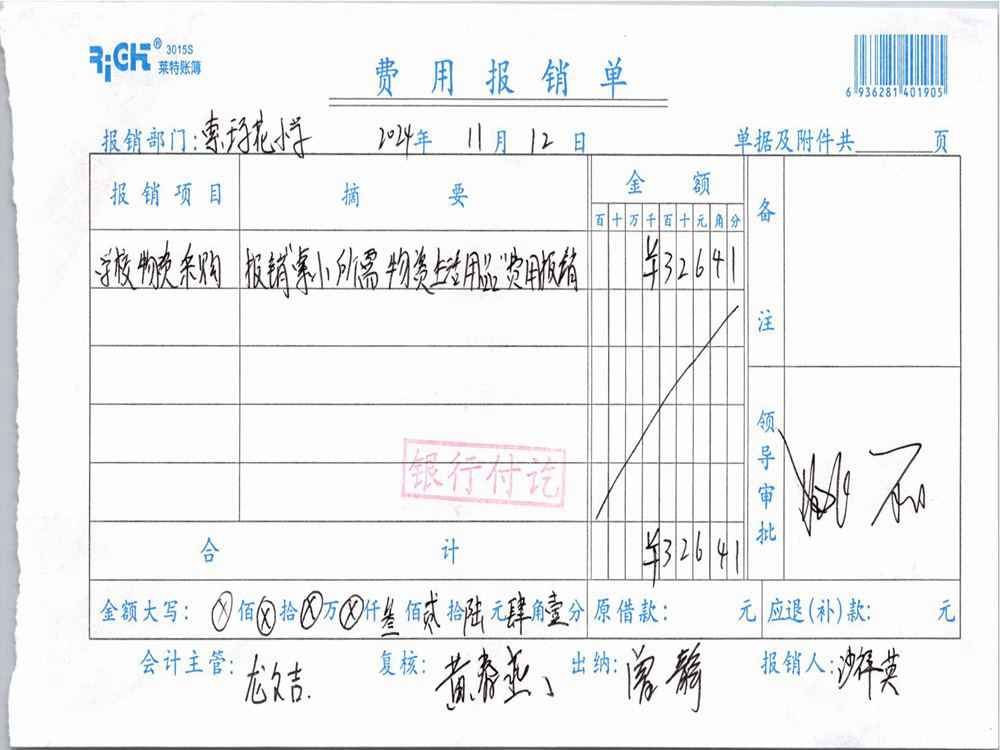 RiGHT® 3015S
莱特账簿
费用报销单
6 936281 401905
报销部门: 索玛花小学 2024年 11月 12日 单据及附件共 页
报销项目 摘要 金额 备注
百十万千百十元角分
学校物资采购 报销"索小所需物资生活用品"费用报销 ¥32641
领导审批
银行付讫
合计 ¥32641
金额大写: ⊗佰⊗拾⊗万⊗仟叁佰贰拾陆元肆角壹分 原借款: 元 应退(补)款: 元
会计主管: 龙文吉. 复核: 黄春燕 出纳: 曾静 报销人: 沙祥英